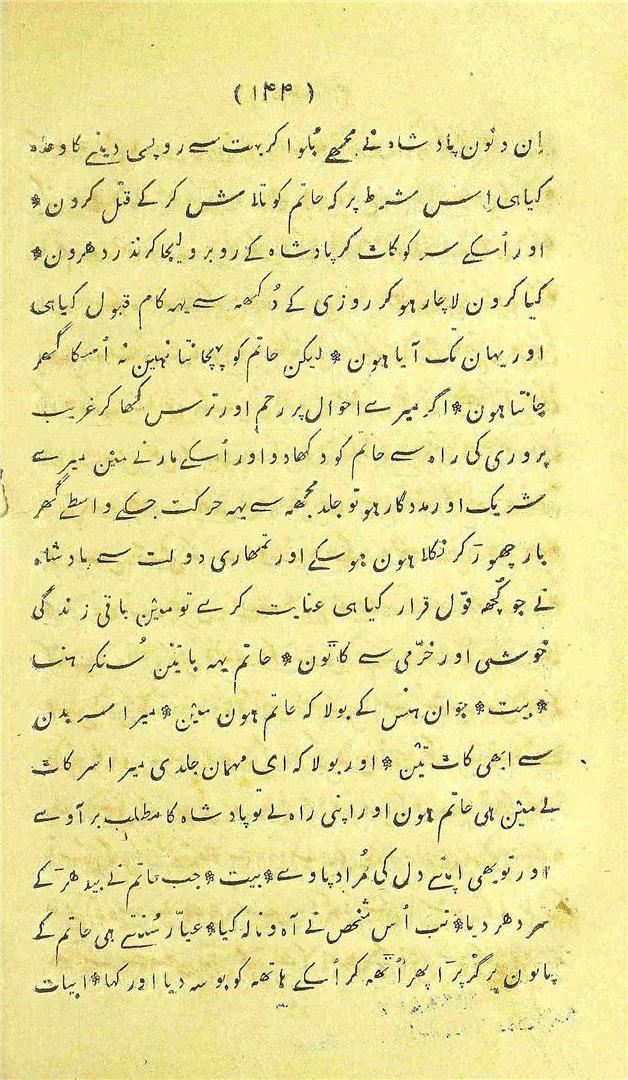 (۱۴۴)
اِن دنون پادشاہ نے مجھے بُلوا کر بہت سے روپی دینے کا وعدہ
کیا ہی اِس شرط پر کہ حاتم کو تلاش کر کے قتل کرون *
اور اُسکے سر کو کاٹ کر پادشاہ کے روبرو لیجا کر نذر دھرون *
کیا کرون لاچار ہو کر روزی کے دُکھہ سے یہہ کام قبول کیا ہی
اور یہان تک آیا ہون * لیکن حاتم کو پہچانتا نہین نہ اُسکا گھر
جانتا ہون * اگر میرے احوال پر رحم اور ترس کھا کر غریب
پروری کی راہ سے حاتم کو دکھا دو اور اُسکے مارنے مین میرے
شریک اور مددگار ہو تو جلد مجھہ سے یہہ حرکت جسکے واسطے گھر
بار چھوڑ کر نکلا ہون ہو سکے اور تمھاری دولت سے پادشاہ
نے جو کُچھ قول قرار کیا ہی عنایت کرے تو مین باقی زندگی
خوشی اور خرّمی سے کاٹون * حاتم یہہ باتین سُنکر ہنسا
* بیت * جوان ہنس کے بولا کہ حاتم ہون مین * میرا سر بدن
سے ابھی کاٹ تین * اور بولا کہ ای مہمان جلدی میرا سر کاٹ
لے مین ہی حاتم ہون اور اپنی راہ لے تو پادشاہ کا مطلب بر آوے
اور تو بھی اپنے دل کی مُراد پاوے * بیت * جب حاتم نے بیدھڑکے
سر دھر دیا * تب اُس شخص نے آہ و نالہ کیا * عیّار سُنتے ہی حاتم کے
پانون پر گر پڑا پھر اُٹھہ کر اُسکے ہاتھہ کو بوسہ دیا اور کہا * ابیات